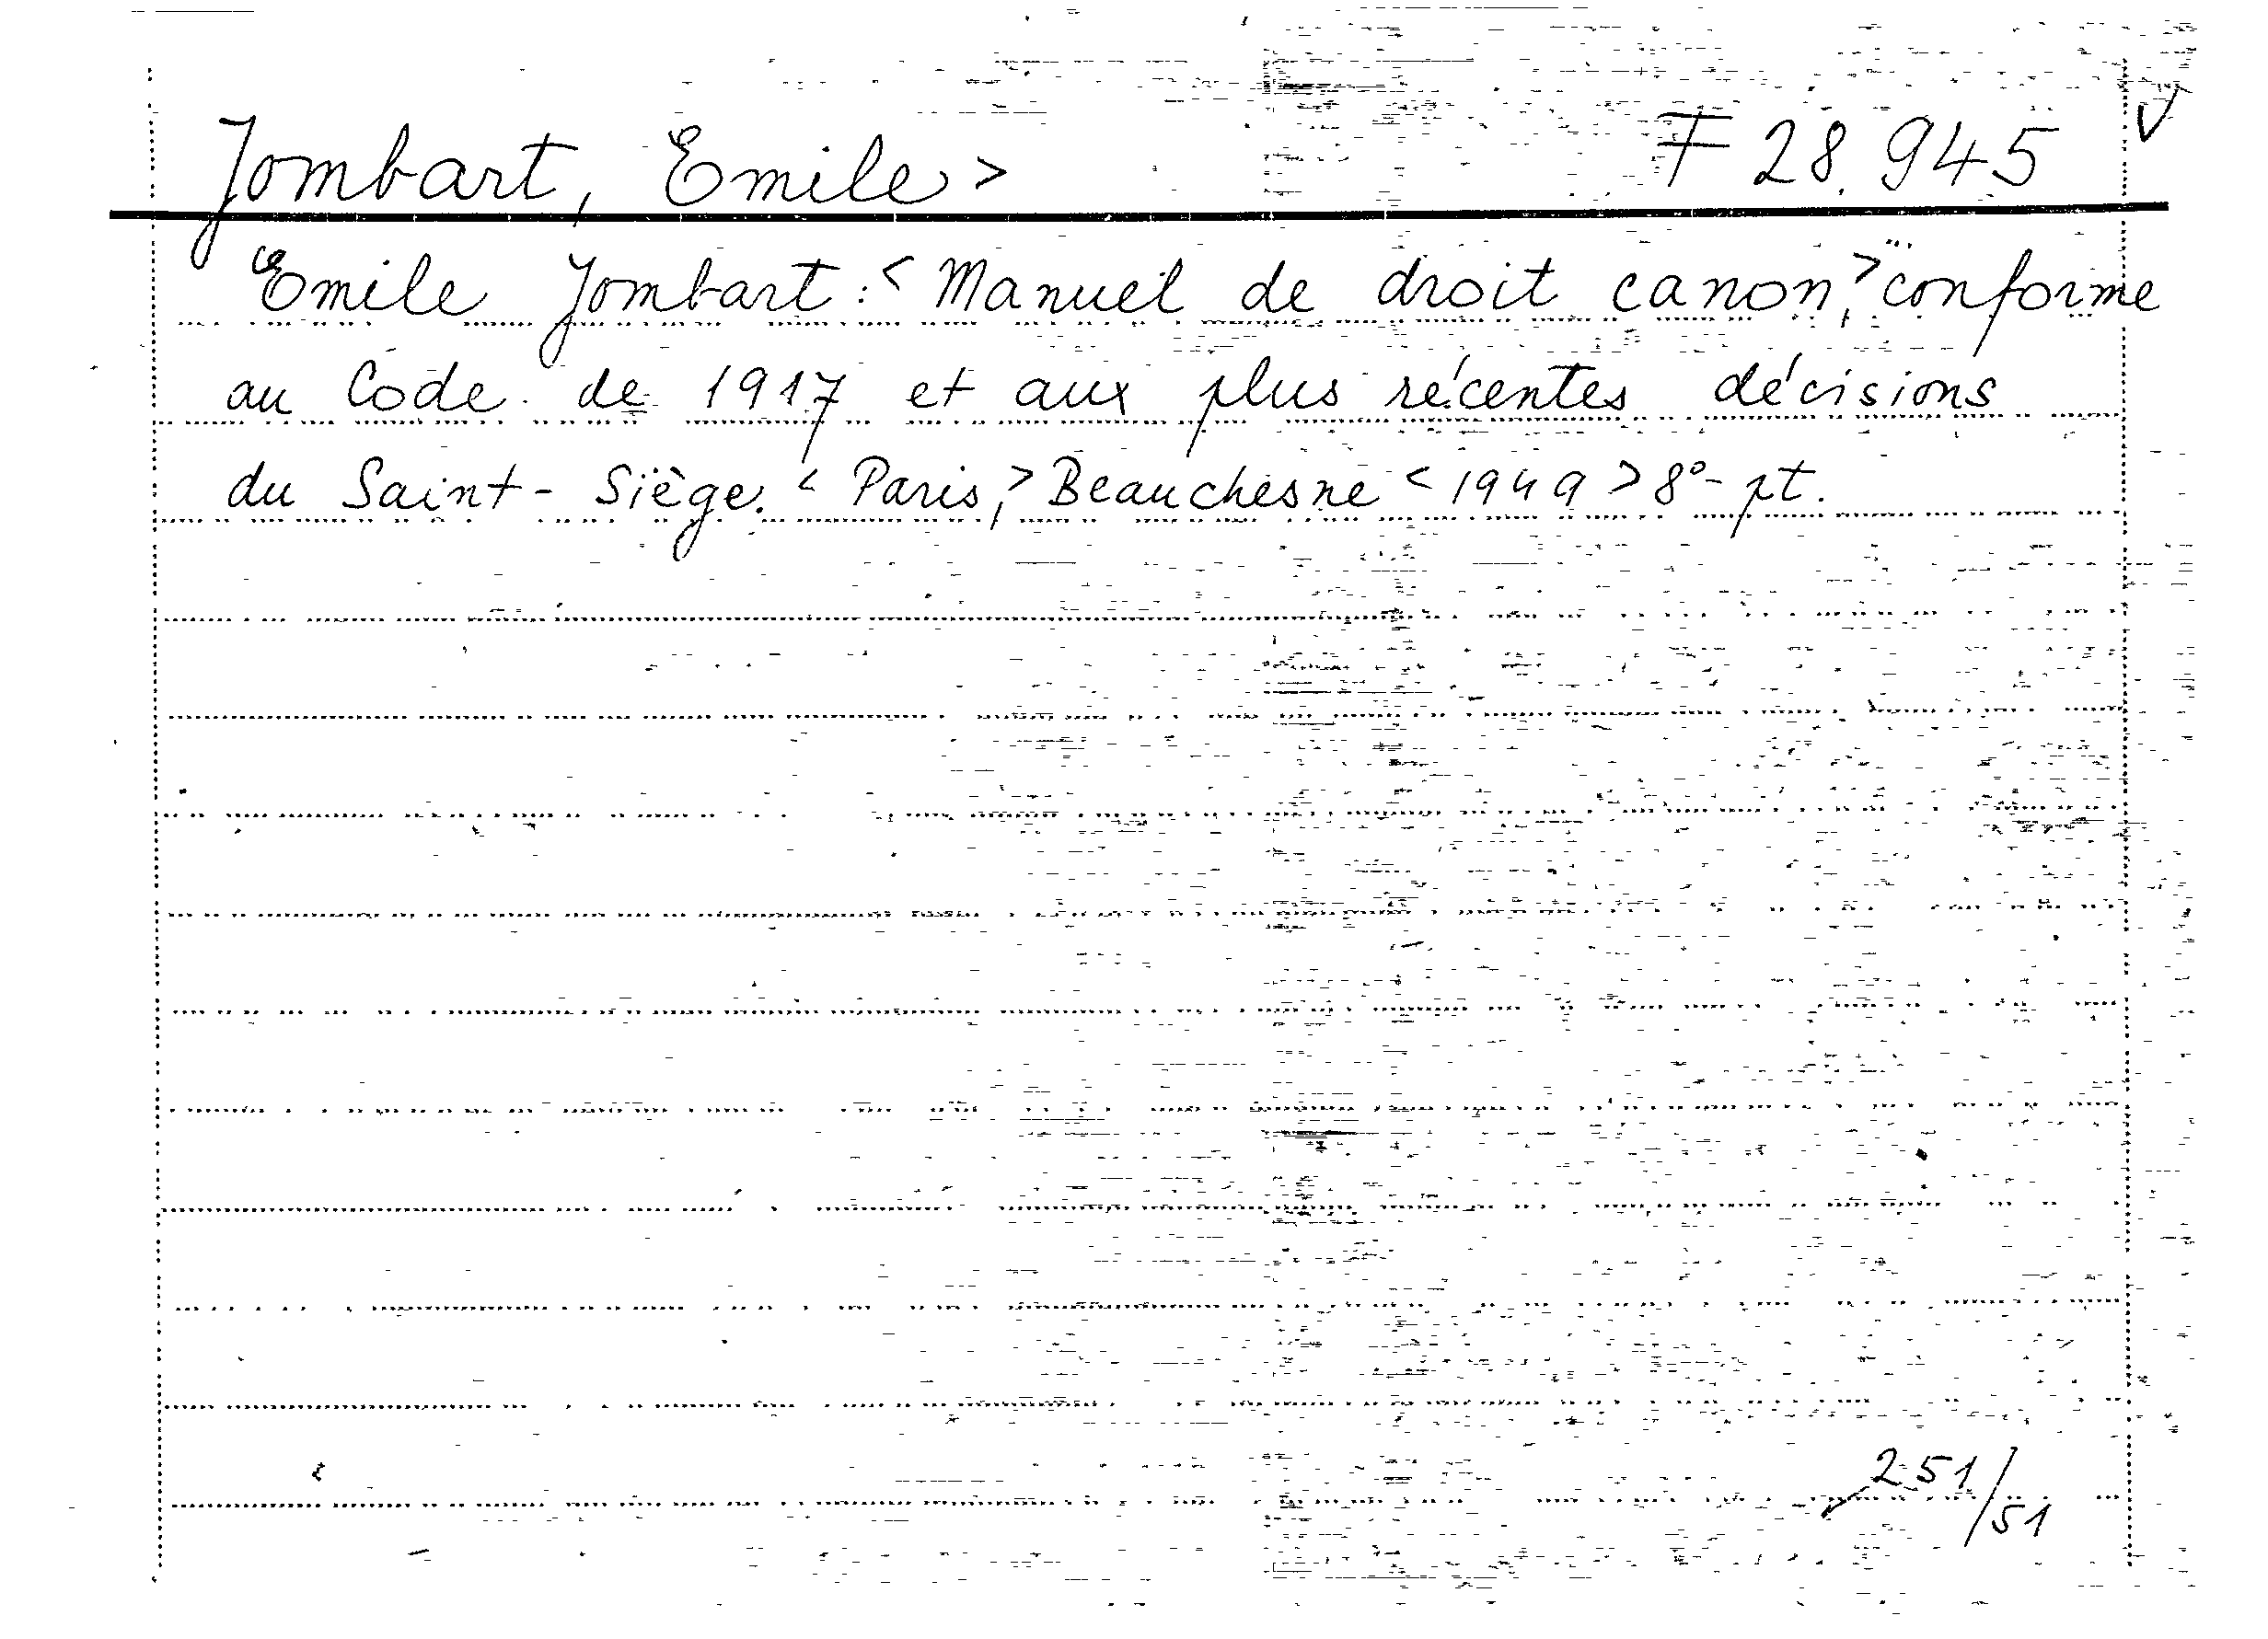 Jombart, Emile> F 28.945
Emile Jombart: <Manuel de droit canon,> conforme
au Code de 1917 et aux plus récentes décisions
du Saint-Siège. <Paris,> Beauchesne <1949> 8°-pt.
251/51